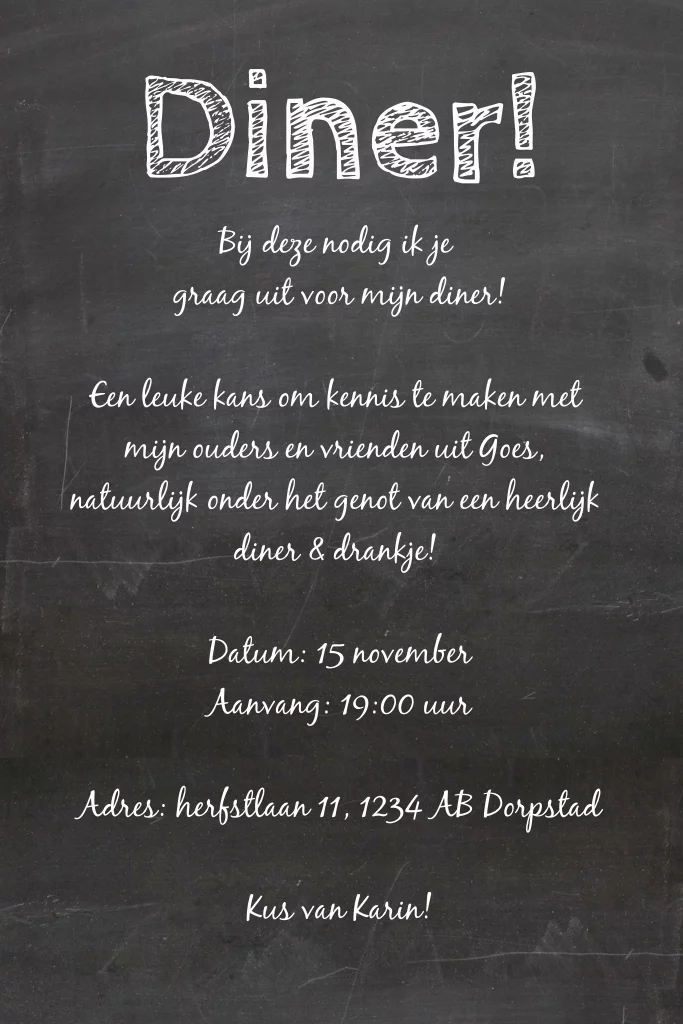 Diner!
Bij deze nodig ik je
graag uit voor mijn diner!
Een leuke kans om kennis te maken met
mijn ouders en vrienden uit Goes,
natuurlijk onder het genot van een heerlijk
diner & drankje!
Datum: 15 november
Aanvang: 19:00 uur
Adres: herfstlaan 11, 1234 AB Dorpstad
Kus van Karin!